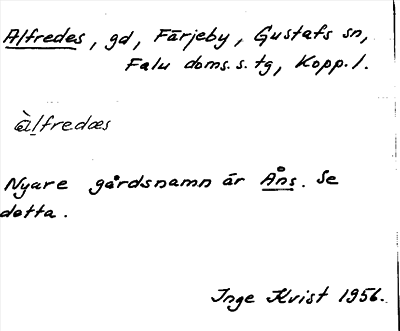 Alfredes, gd, Färjeby, Gustafs sn,
Falu doms. s. tg, Kopp. l.
àl̠fredæs
Nyare gårdsnamn är Åns. Se
detta.
Inge Kvist 1956.